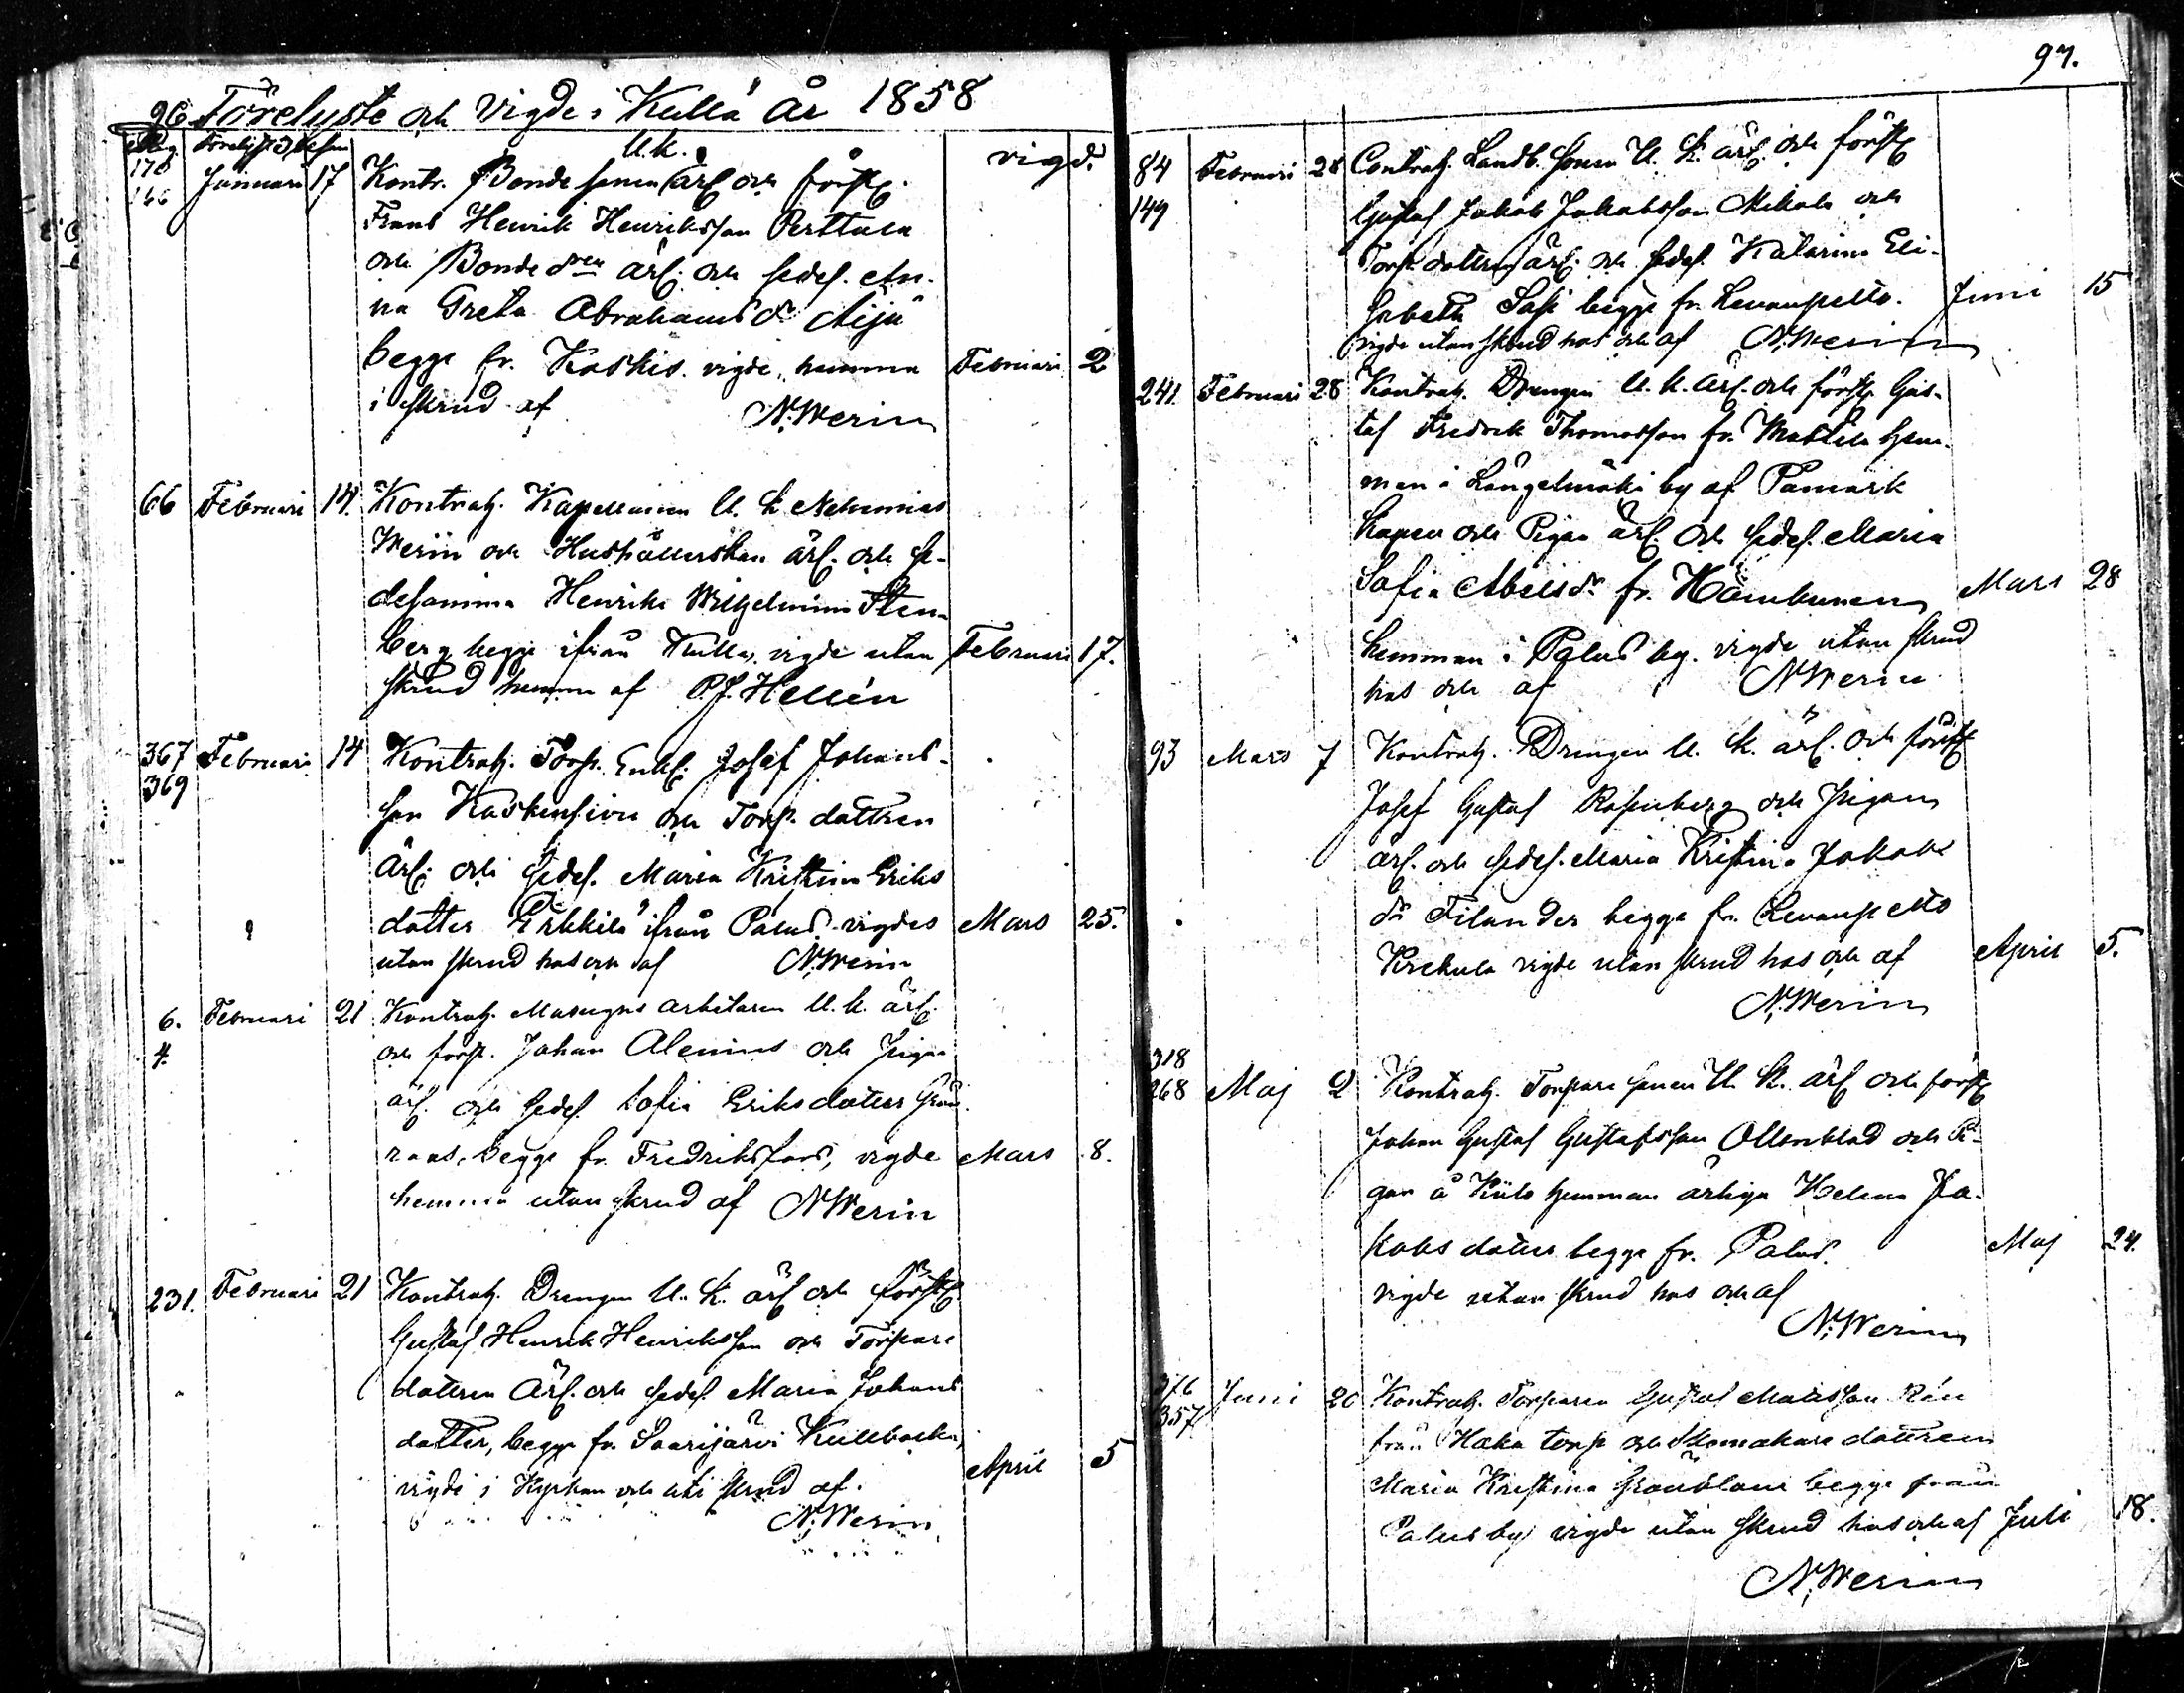 96 Förelyste och Vigde i Kullå år 1858
Pag. Förelyste
178 Januari 17 Kontr. Bonde sonen U.k. ärl och förstl. vigd.
166 Frans Henrik Henriksson Perttula
och Bonde dren ärl. och seders. An-
na Greta Abrahamsdr Äijä
begge fr. Koskis vigde hemma Februari 2
i skrud af N. Werin
66 Februari 14. Kontrah. Kapellanen U. k. Nehemias
Werin och Hushållerskan ärl. och se-
desamma Henrika Wilhelmina Sten-
berg begge ifrån Kulla, vigde utan Februari 17.
skrud hemma af P.J. Hellén
367 Februari 14 Kontrah. Torp. Enkl. Josef Johans-
369 son Koskensivu och Torp. dottren
Ärl. och Sedes. Maria Kristina Eriks
dotter Erkkilä ifrån Palus vigdes Mars 25.
utan skrud hos och af N. Werin
6. Februari 21 Kontrah. Masugns arbetaren U. k. ärl.
4. och först. Johan Alenius och Pigan
ärl. och Sedes. Sofia Eriksdotter Grön-
roos, begge fr. Fredriksfors, vigde Mars 8.
hemma utan skrud af N Werin
231. Februari 21 Kontrah. Drengen U. k. ärl och förstl.
Gustaf Henrik Henriksson och Torpare
dottren Ärl. och sedes. Maria Johans
dotter, begge fr. Saarijärvi Kullbacka,
vigde i Kyrkan och uti skrud af April 5
N. Werin
97.
84 Februari 28 Contrah. Landb. sonen U. k. ärl. och förstl
149 Gustaf Jakob Jakobsson Mikola och
Torp. dottren ärl. och sedes. Katarina Eli-
sabeth Sasi begge fr. Levanpelto. Juni 15
vigde utan skrud hos och af N. Werin
241. Februari 28 Kontrah. Drengen U. k. ärl. och förstl. Gus-
taf Fredrik Thomasson fr. Mattila hem-
man i Längelmäki by af Påmark
Kapell och Pigan ärl. och sedes. Maria
Sofia Abelsdr fr. Mars 28
hemman i Palus by. vigde utan skrud
hos och af N Werin
93 Mars 7 Kontrah. Drengen U. k. ärl. och förstl
Josef Gustaf Rosenberg och Pigan
ärl. och sedes. Maria Kristina Jakobs
dr Filander begge fr. Levanpelto
Krekula vigde utan skrud hos och af April 5.
N. Werin
318
268 Maj 2 Kontrah. Torpare sonen U. k. ärl och förstl
Johan Gustaf Gustafsson Ollonblad och Pi-
gan å hemman ärliga Helena Ja-
kobs dotter begge fr. Palus. Maj 24.
vigde utan skrud hos och af
N. Werin
376 Juni 20 Kontrah. Torparen Gustaf Matsson Rén
357 från Haka torp och Skomakare dottren
Maria Kristina Grönblom begge från
Palus by vigde utan skrud hos och af Juli 18.
N. Werin